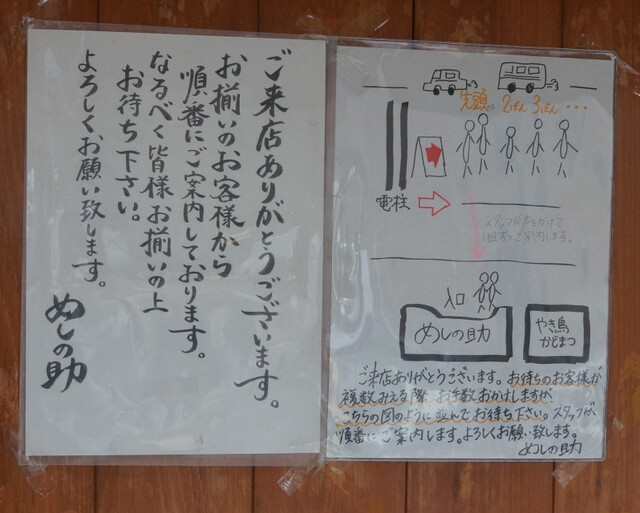 ご来店ありがとうございます。
お揃いのお客様から
順番にご案内しております。
なるべく皆様お揃いの上
お待ち下さい。
よろしくお願い致します。
めしの助
先頭 2ばん 3ばん ・・・
電柱
ご案内します。
入口
めしの助
やき鳥
かどまつ
ご来店ありがとうございます。お待ちのお客様が
複数みえる際 お手数おかけしますが
こちらの図のように並んでお待ち下さい。スタッフが
順番にご案内します。よろしくお願い致します。
めしの助